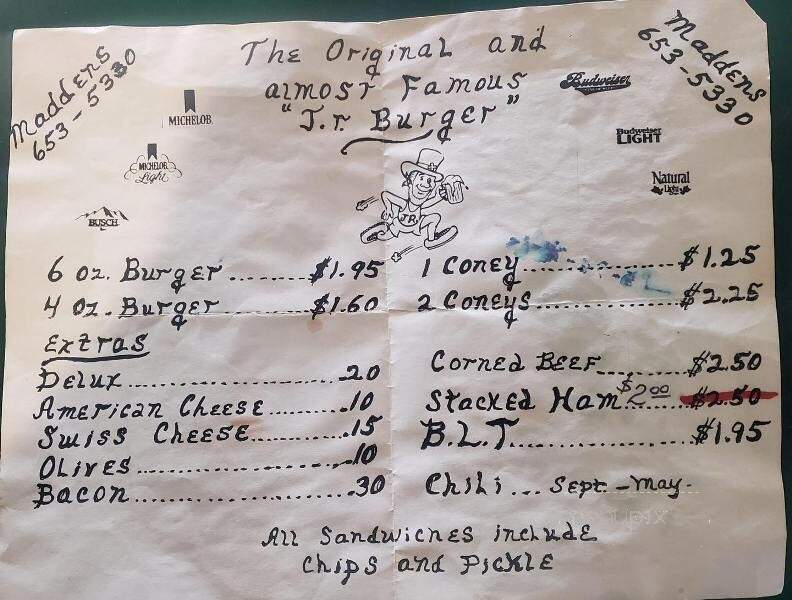 Maddens
653-5330
The Original and
almost Famous
"J.r. Burger"
Maddens
653-5330
MICHELOB
MICHELOB
Light
BUSCH
Budweiser
Budweiser
LIGHT
Natural
Light
JR.
6 oz. Burger ........ $1.95
4 oz. Burger ........ $1.60
Extras
Delux ........ .20
American Cheese ........ .10
Swiss Cheese ........ .15
Olives ........ .10
Bacon ........ .30
1 Coney ........ $1.25
2 Coneys ........ $2.25
Corned Beef ........ $2.50
Stacked Ham $2.00 ........ $2.50
B.L.T. ........ $1.95
Chili ... Sept. - May.
All Sandwiches include
Chips and Pickle